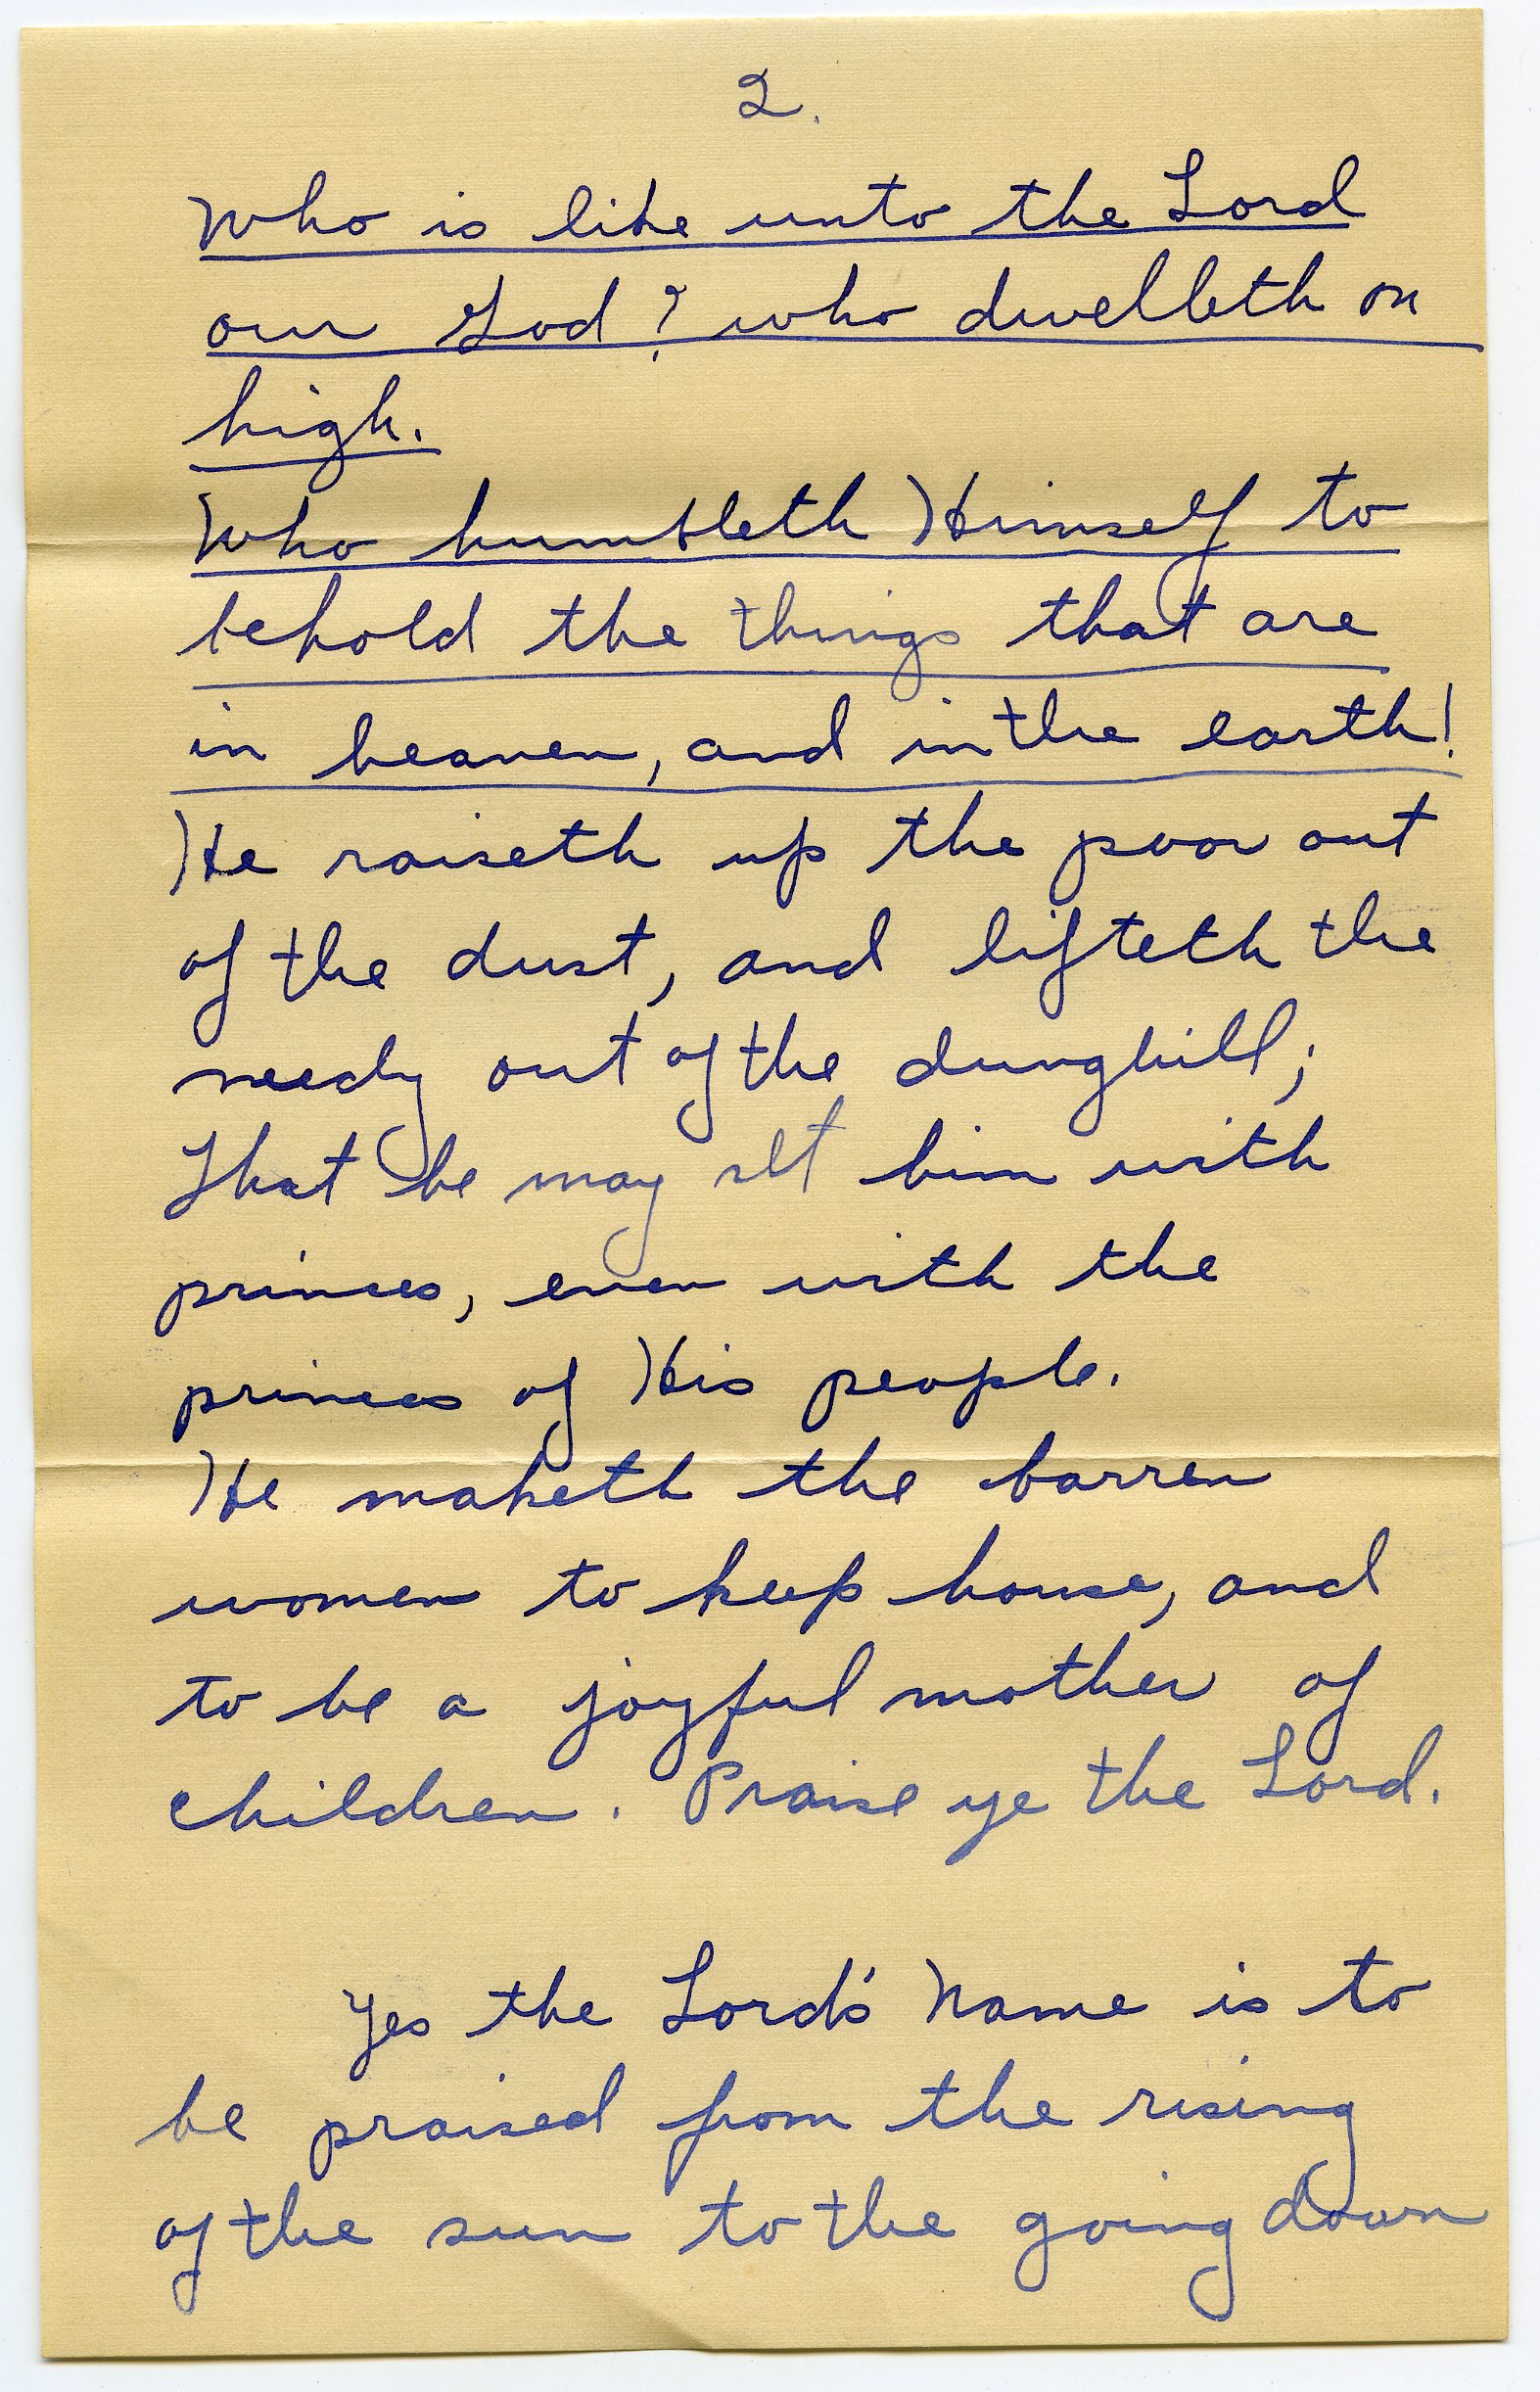 2.
Who is like unto the Lord
our God? who dwelleth on
high.
Who humbleth Himself to
behold the things that are
in heaven, and in the earth!
He raiseth up the poor out
of the dust, and lifteth the
needy out of the dunghill;
That he may set him with
princes, even with the
princes of His people.
He maketh the barren
women to keep house, and
to be a joyful mother of
children. Praise ye the Lord.
Yes the Lord's Name is to
be praised from the rising
of the sun to the going down